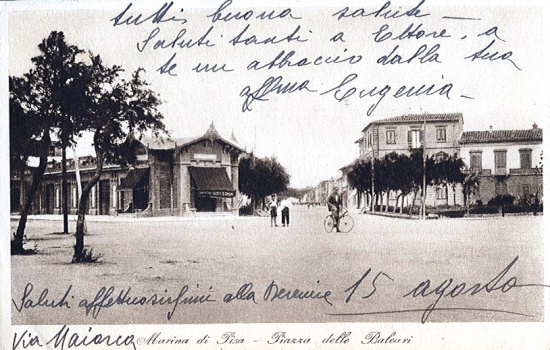 tutti buona salute –
Saluti tanti a Ettore, a
te un abbraccio dalla tua
aff.ma Eugenia –
Saluti affettuosissimi alla Berenice
15 agosto
Via Maiorca
Marina di Pisa - Piazza delle Baleari